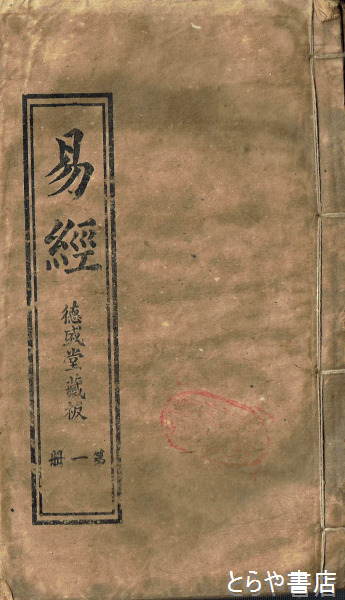 易經
德成堂藏板
第一冊
とらや書店